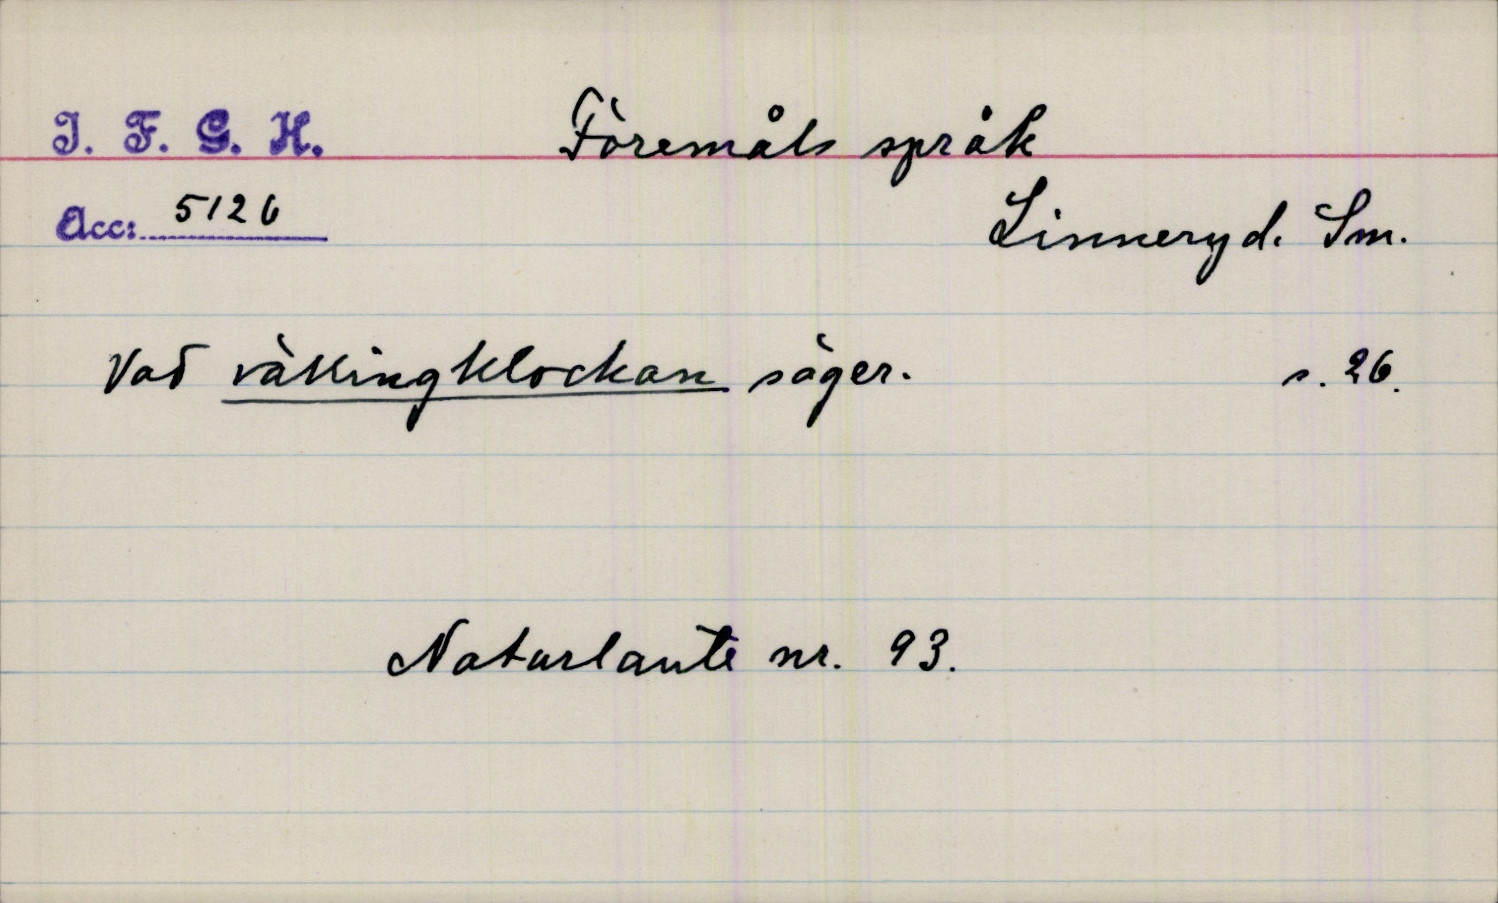 I. F. G. H.
Föremåls språk
Acc: 5126
Linneryd. Sm.
Vad vällingklockan säger. s. 26.
Naturlaute nr. 93.